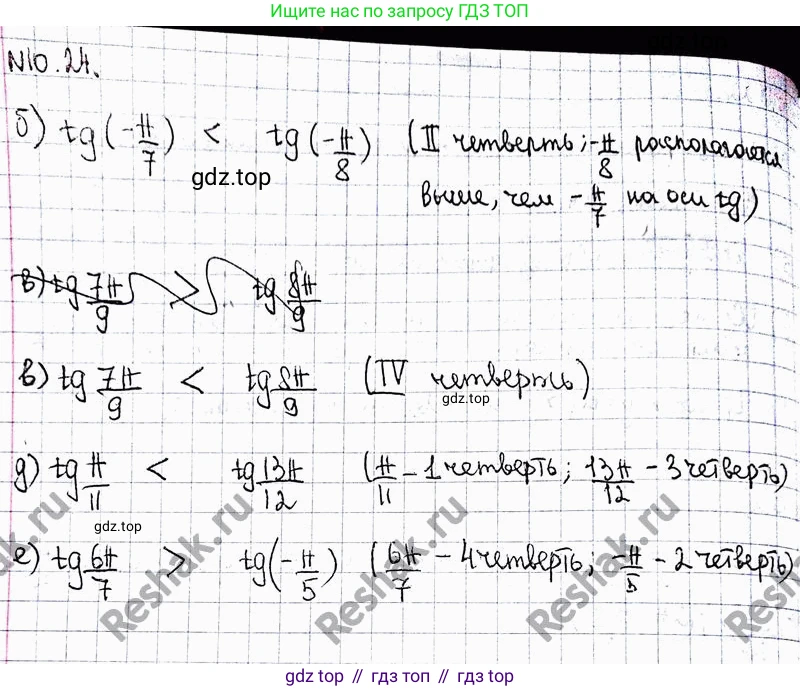 Ищите нас по запросу ГДЗ ТОП
N10.24.
б) tg(-π/7) < tg(-π/8) (II четверть; -π/8 располагается
выше, чем -π/7 на оси tg)
gdz.top
в) tg 7π/9 > tg 8π/9
в) tg 7π/9 < tg 8π/9 (IV четверть)
gdz.top
д) tg π/11 < tg 13π/12 (π/11 - 1 четверть; 13π/12 - 3 четверть)
gdz.top
е) tg 6π/7 > tg(-π/5) (6π/7 - 4 четверть; -π/5 - 2 четверть)
Reshak.ru
Reshak.ru
Reshak.ru
Reshak.ru
gdz top // гдз топ // gdz.top